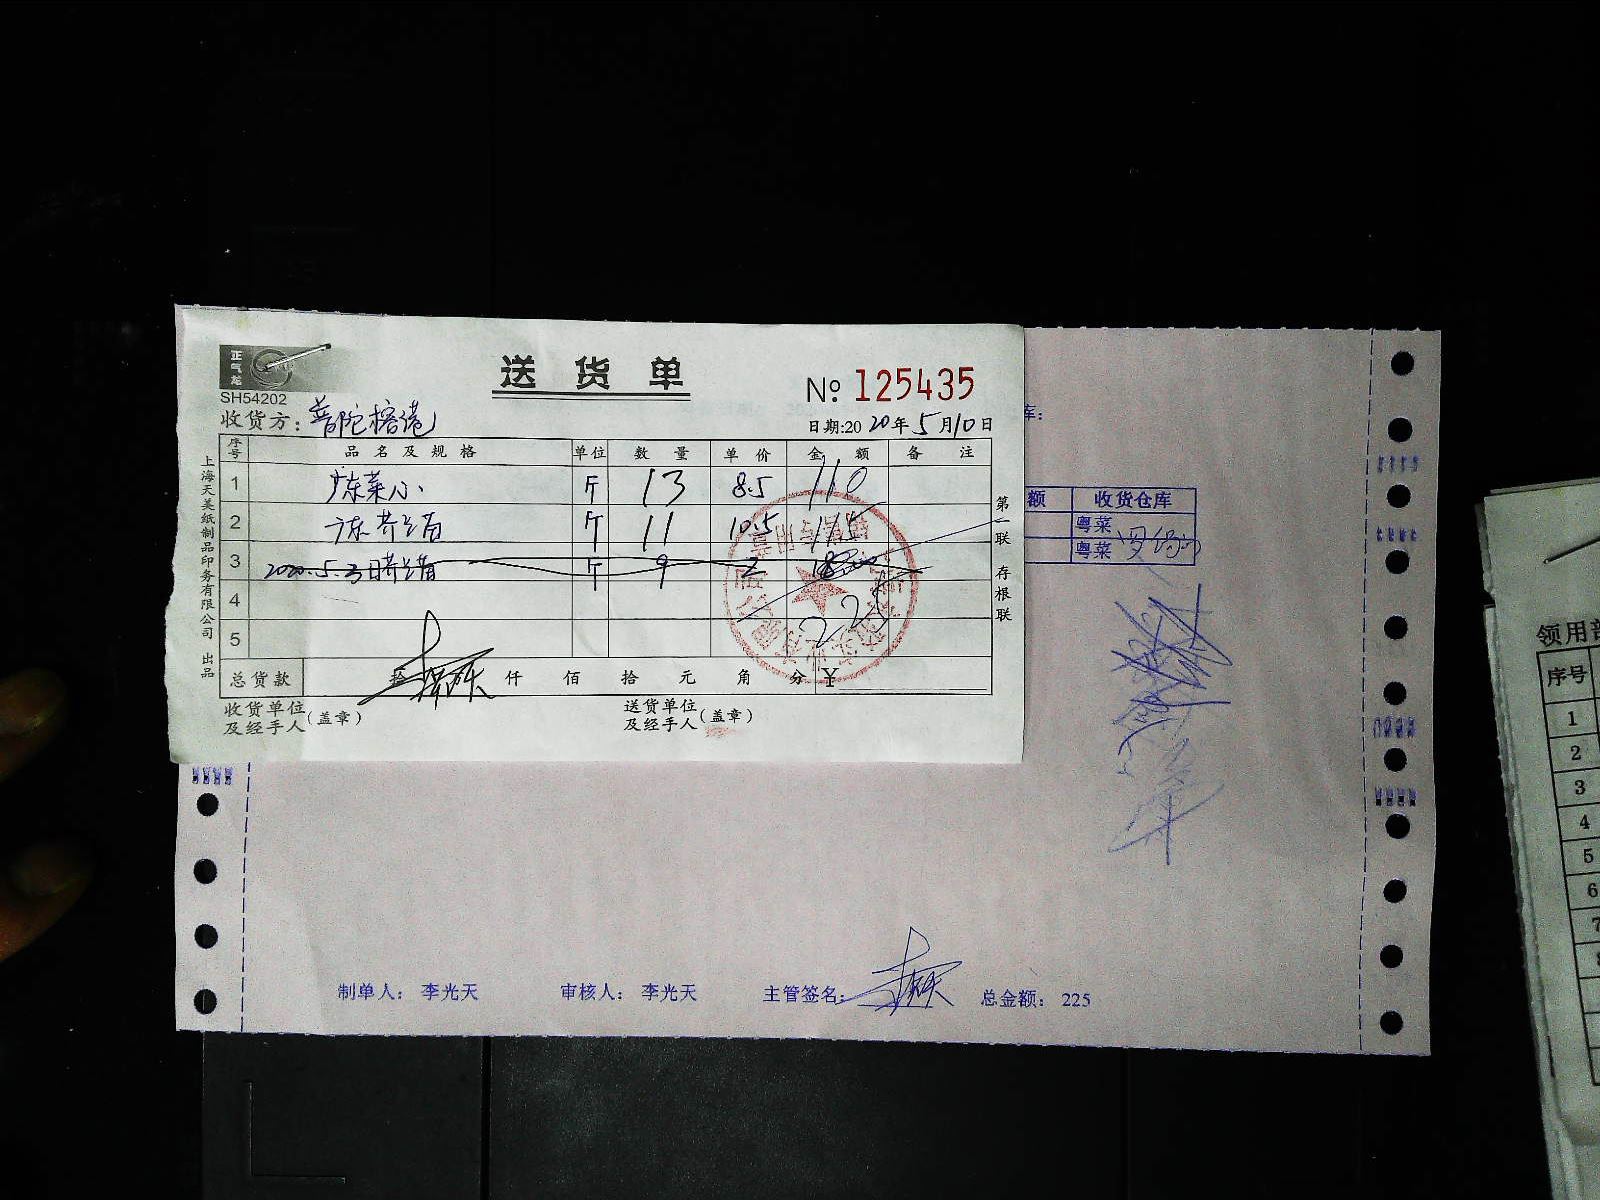 正气龙
SH54202
送 货 单
№ 125435
收货方：普陀榕港
日期:2020年5月10日
序号 品名及规格 单位 数量 单价 金额 备注
1 广东菜心 斤 13 8.5 110
2 广东芥兰苗 斤 11 10.5 115
3 2020.5.3日芥兰苗 斤 9 2
4
5
225
总货款 拾 仟 佰 拾 元 角 分 ￥
收货单位及经手人（盖章）
送货单位及经手人（盖章）
上海天美纸制品印务有限公司 出品
第一联 存根联
库：
额 收货仓库
粤菜
粤菜
制单人： 李光天 审核人： 李光天 主管签名： 总金额： 225
领用部
序号
1
2
3
4
5
6
7